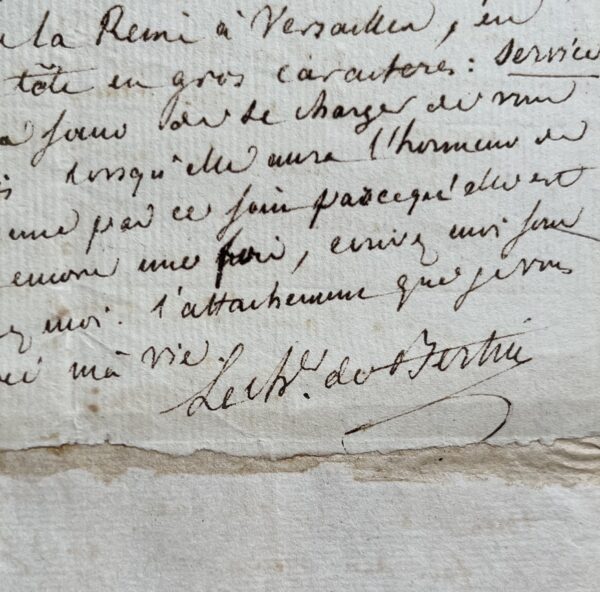 la Reine à Versailles, en
tête en gros caracteres: service
soin de se charger de vous
lorsqu'elle aura l'honneur de
par ce soin parcequ'elle est
encore une fois, ecrivez moi sous
moi. l'attachement que je vous
ma vie.
Le chr. de Bertin